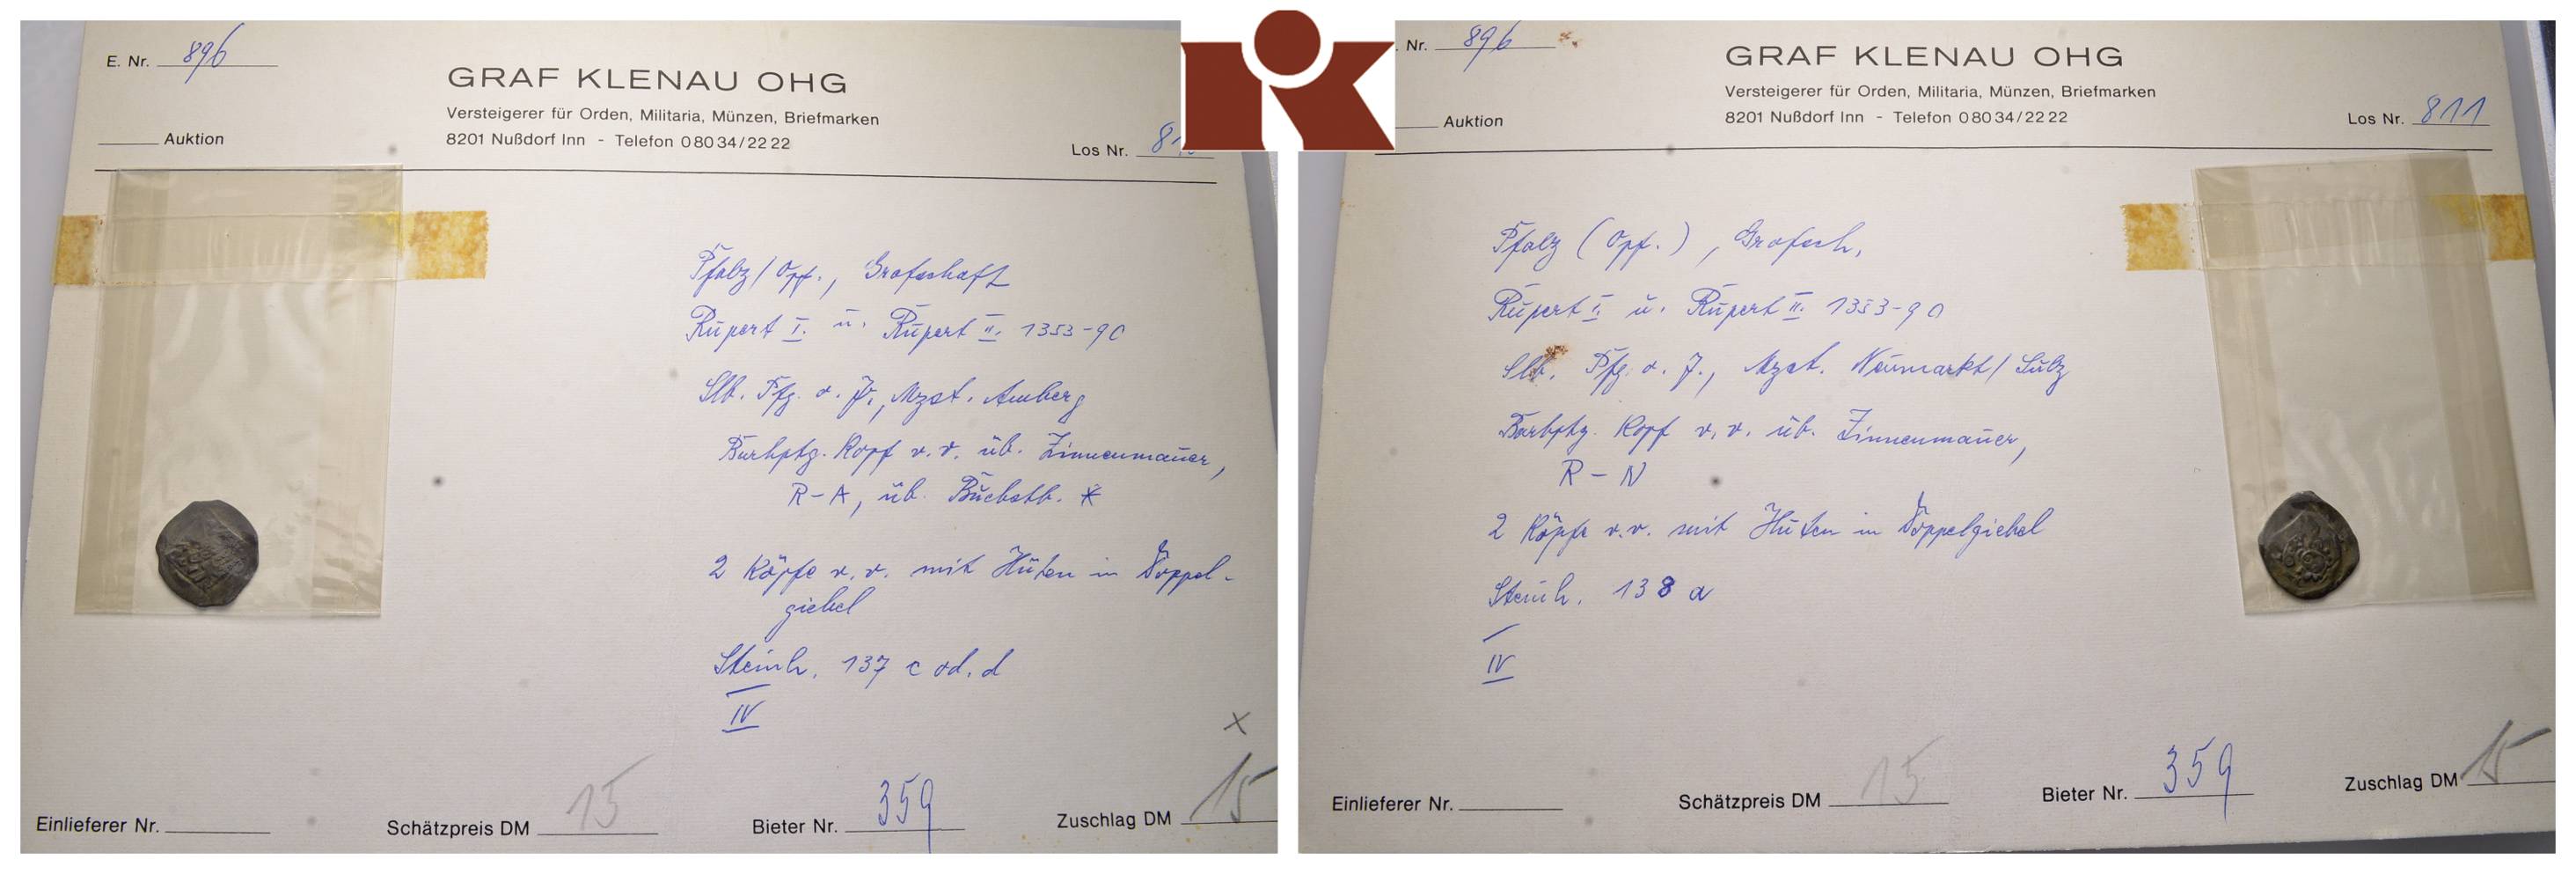 E. Nr. 896
GRAF KLENAU OHG
Versteigerer für Orden, Militaria, Münzen, Briefmarken
8201 Nußdorf Inn - Telefon 08034/2222
Auktion
Los Nr.
Pfalz/Opf., Grafschaft
Rupert I. u. Rupert II. 1353-90
Slb. Pfg. o. J., Mzst. Amberg
Barhptg. Kopf v. v. üb. Zinnenmauer,
R-A, üb. Buchstb. *
2 Köpfe v. v. mit Hüten in Doppel-
giebel
Steinh. 137 c od. d
IV
x
Einlieferer Nr.
Schätzpreis DM 15
Bieter Nr. 359
Zuschlag DM 15
Nr. 896
GRAF KLENAU OHG
Versteigerer für Orden, Militaria, Münzen, Briefmarken
8201 Nußdorf Inn - Telefon 08034/2222
Auktion
Los Nr. 811
Pfalz (Opf.), Grafsch.
Rupert I. u. Rupert II. 1353-90
Slb. Pfg. o. J., Mzst. Neumarkt/Sulz
Barhptg. Kopf v. v. üb. Zinnenmauer,
R-N
2 Köpfe v. v. mit Hüten in Doppelgiebel
Steinh. 138 a
IV
Einlieferer Nr.
Schätzpreis DM 15
Bieter Nr. 359
Zuschlag DM 15